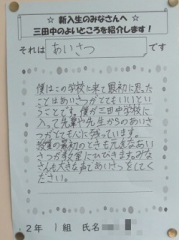 ☆ 新入生のみなさんへ ☆
三田中のよいところを紹介します！
それは あいさつ です
僕はこの学校に来て最初に思った
ことはあいさつがとてもいいという
ことです。僕が三田中学校に
入って先輩や先生からのあいさ
つがとても心に残っています。
教室の最初のできる元気なあいさ
つが教室にひびきます。みな
さんも大きな声であいさつをしてく
ださい。
2年 1組 氏名